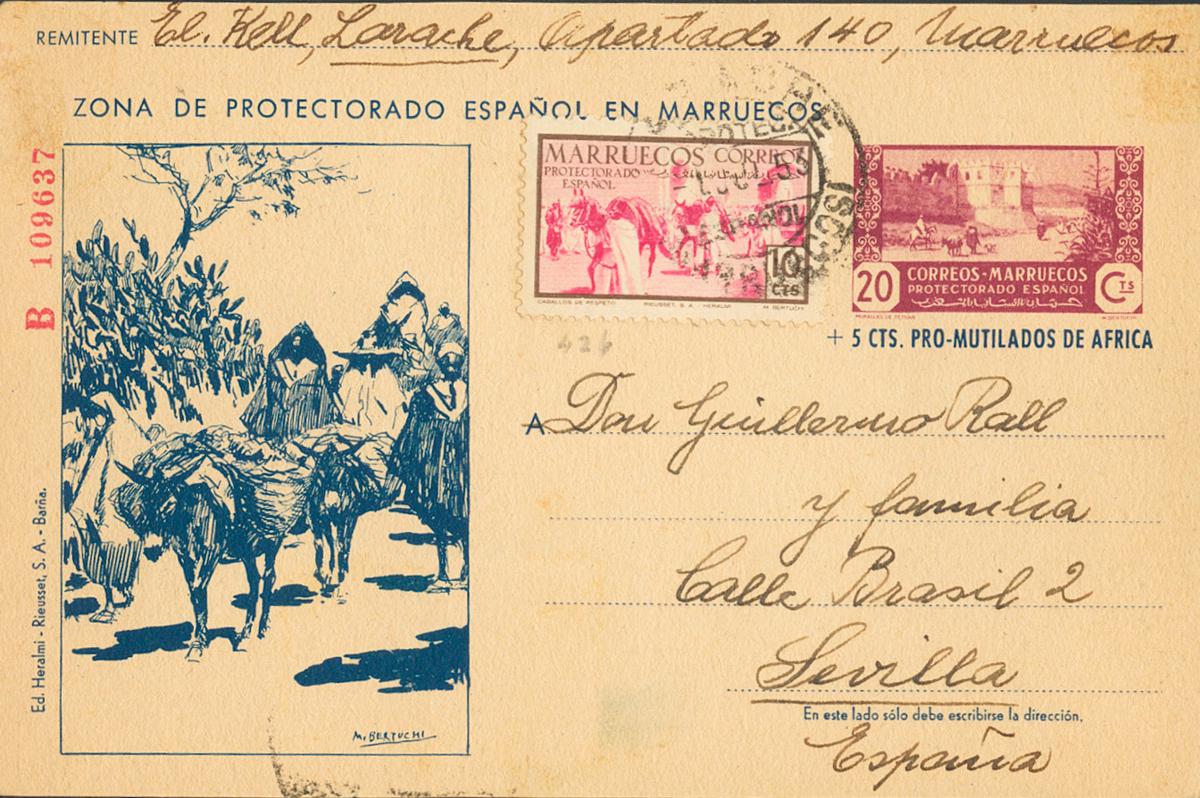 REMITENTE El. Kell, Larache, Apartado 140, Marruecos
ZONA DE PROTECTORADO ESPAÑOL EN MARRUECOS
B 109637
MARRUECOS CORREOS
PROTECTORADO
ESPAÑOL
10
CTS
CABALLOS DE RESPETO RIEUSSET, S.A. HERALMI M. BERTUCHI
20 CORREOS-MARRUECOS
PROTECTORADO ESPAÑOL
CTS
MURALLAS DE TETUAN M. BERTUCHI
+ 5 CTS. PRO-MUTILADOS DE AFRICA
426
A Don Guillermo Rall
y familia
Calle Brasil 2
Sevilla
En este lado sólo debe escribirse la dirección.
España
Ed. Heralmi - Rieusset, S. A. - Barña.
M. BERTUCHI